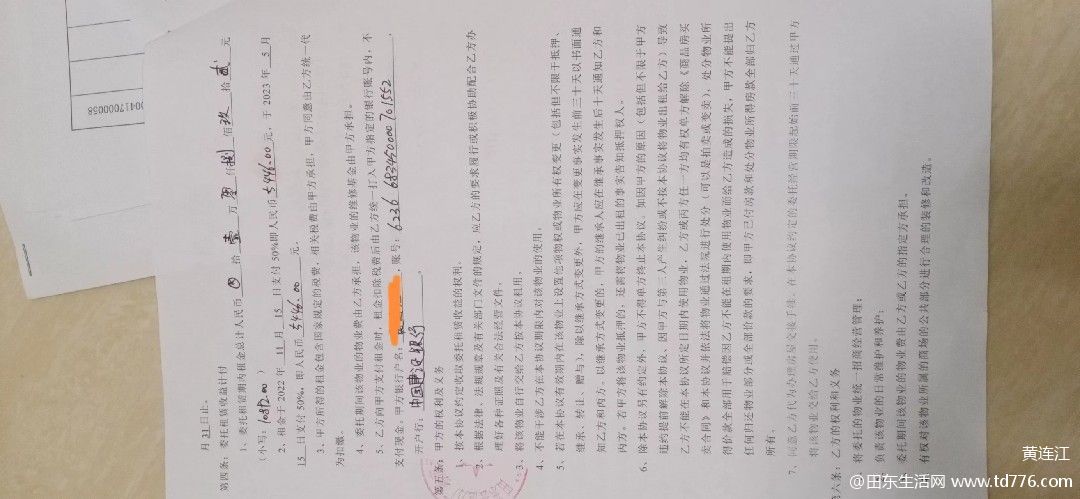 月31日止。
第四条：委托租赁收益计付
1、委托租赁期内租金总计人民币 ⊗ 拾 壹 万 零 仟 捌 佰 玖 拾 贰 元
（小写：10892.00）
2、租金于 2022 年 11 月 15 日支付 50%即人民币 5446.00 元，于 2023 年 5 月
15 日支付 50%，即人民币 5446.00 元。
3、甲方所得的租金包含国家规定的税费，相关税费由甲方承担，甲方同意由乙方统一代
为扣缴。
4、委托期间该物业的物业费由乙方承担，该物业的维修基金由甲方承担。
5、乙方向甲方支付租金时，租金扣除税费后由乙方统一打入甲方指定的银行账号内，不
支付现金。甲方银行户名：，账号：6236 683450000701552，
开户行：中国建设银行
第五条：甲方的权利及义务
1、按本协议约定收取委托租赁收益的权利。
2、根据法律、法规规章及有关部门文件的规定，应乙方的要求履行或积极协助配合乙方办
理好各种证照及有关合法经营文件。
3、将该物业自行交给乙方按本协议租用。
4、不能干涉乙方在本协议期限内对该物业的使用。
5、若在本协议有效期内在该物业上设置他项物权或物业所有权变更（包括但不限于抵押、
继承、转让、赠与），除以继承方式变更外，甲方应在变更事实发生前三十天以书面通
知乙方和丙方。以继承方式变更的，甲方的继承人应在继承事实发生后十天通知乙方和
丙方。若甲方将该物业抵押的，还需将物业已出租的事实告知抵押权人。
6、除本协议另有约定外，甲方不得单方终止本协议。如因甲方的原因（包括但不限于甲方
违约提前解除本协议、因甲方与第三人产生纠纷或不按本协议将物业出租给乙方）导致
乙方不能在本协议所定日期内使用物业，乙方或丙方任一方均有权单方解除《商品房买
卖合同》和本协议并依法将物业通过法院进行处分（可以是拍卖或变卖），处分物业所
得价款全部用于赔偿因乙方不能在租期内使用物业而给乙方造成的损失，甲方不能提出
任何归还物业部分或全部价款的要求，即甲方已付房款和处分物业所得房款全部归乙方
所有。
7、同意乙方代为办理房屋交接手续，在本协议约定的委托经营期限起始前三十天通过甲方
将该物业交给乙方使用。
第六条：乙方的权利和义务
将委托的物业统一招商经营管理；
负责该物业的日常维护和养护；
委托期间该物业的物业费由乙方或乙方的指定方承担。
有权对该物业附属的商场的公共部分进行合理的装修和改造。
0417000058
黄连江
@田东生活网 www.td776.com